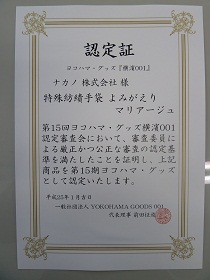 認定証
ヨコハマ・グッズ『横濱001』
ナカノ 株式会社 様
特殊紡績手袋 よみがえり
マリアージュ
第15回ヨコハマ・グッズ横濱001
認定審査会において、審査委員に
よる厳正かつ公正な審査の認定基
準を満たしたことを証明し、上記
商品を第15期ヨコハマ・グッズ
として認定いたします。
平成25年1月吉日
一般社団法人 YOKOHAMA GOODS 001
代表理事 前田